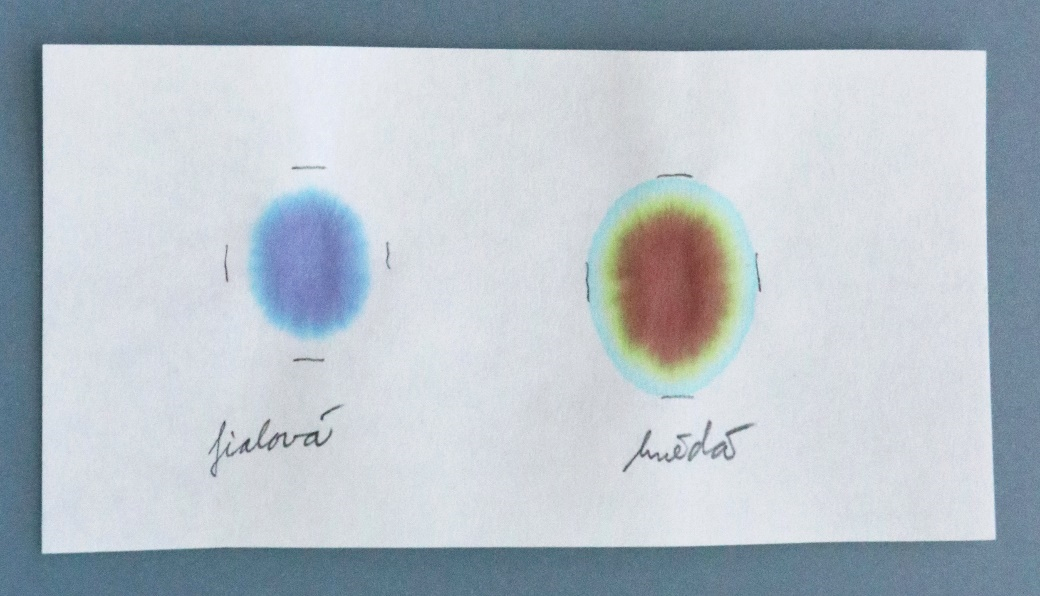 fialová
hnědá